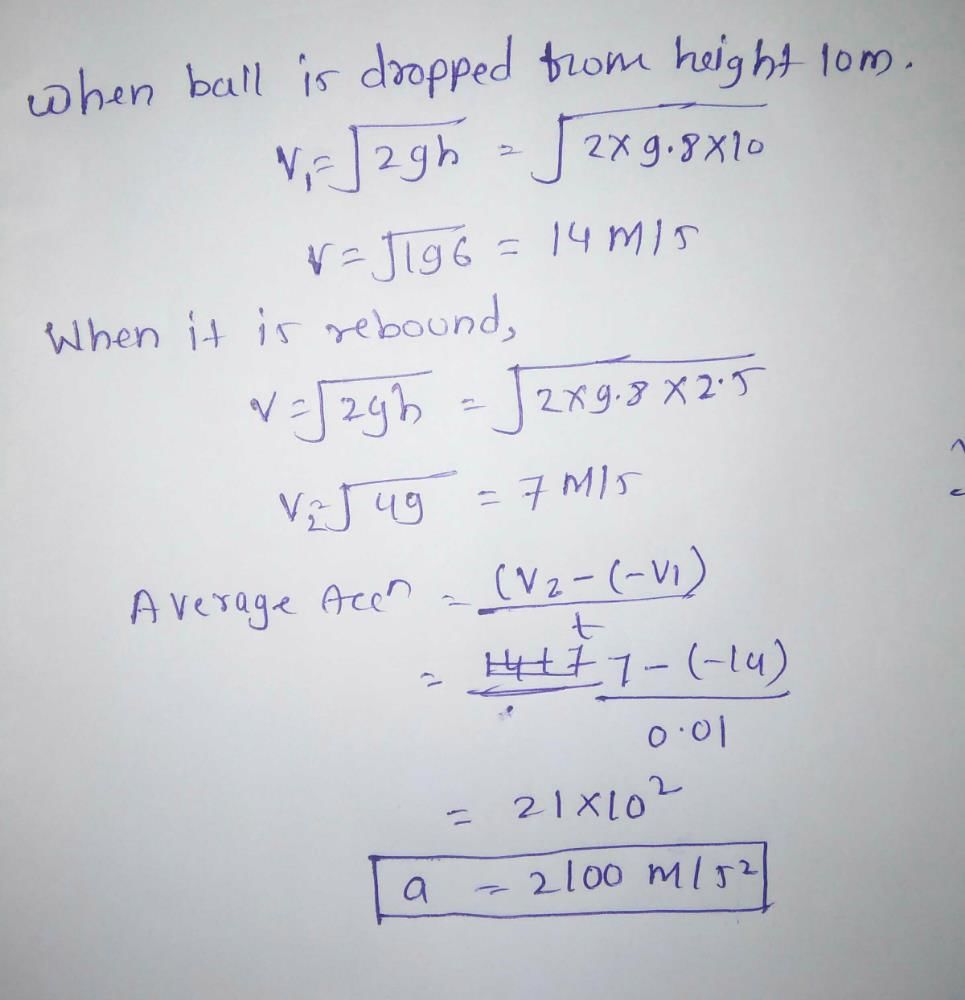 When ball is dropped from height 10m.
V₁ = √2gh = √2×9.8×10
V = √196 = 14 m/s
When it is rebound,
V = √2gh = √2×9.8×2.5
V₂ = √49 = 7 m/s
Average Accn = (V₂-(-V₁)
t
= 14+7 7-(-14)
0.01
= 21×10²
a = 2100 m/s²